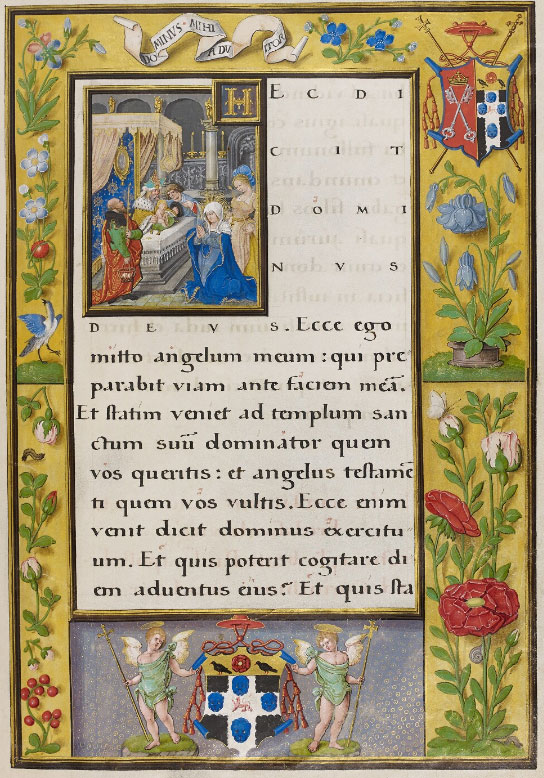 DOMINVS · MIHI ADIVTOR
HEC DI
CIT
DOMI
NVS
DEVS. Ecce ego
mitto angelum meum : qui pre
parabit viam ante faciem meā.
Et statim veniet ad templum san
ctum suū dominator quem
vos queritis : et angelus testamē
ti quem vos vultis. Ecce enim
venit dicit dominus exercitu
um. Et quis poterit cogitare di
em adventus eius? Et quis sta